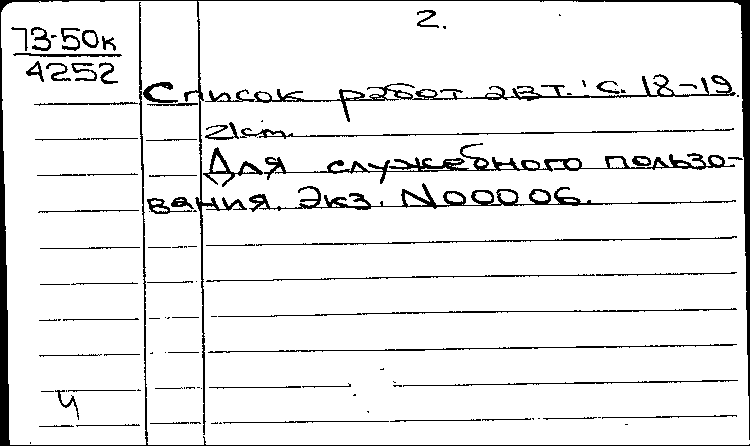 2.
73-50к
4252
Список работ авт.: с. 18-19
21см.
Для служебного пользо-
вания. Экз. N00006.
ч